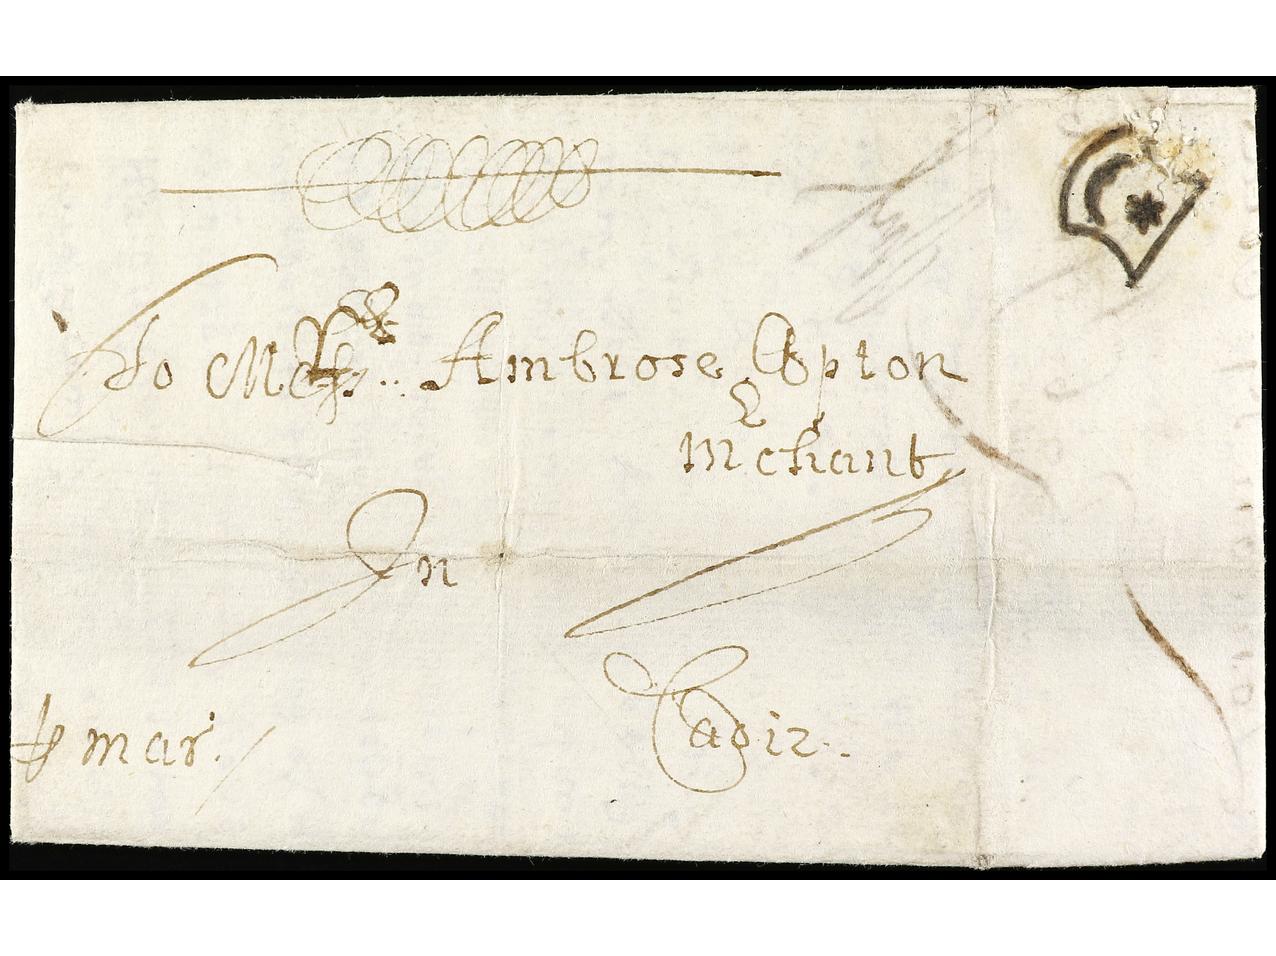 To Mr Ambrose Upton
Mchant
In
Cadiz..
p mar.